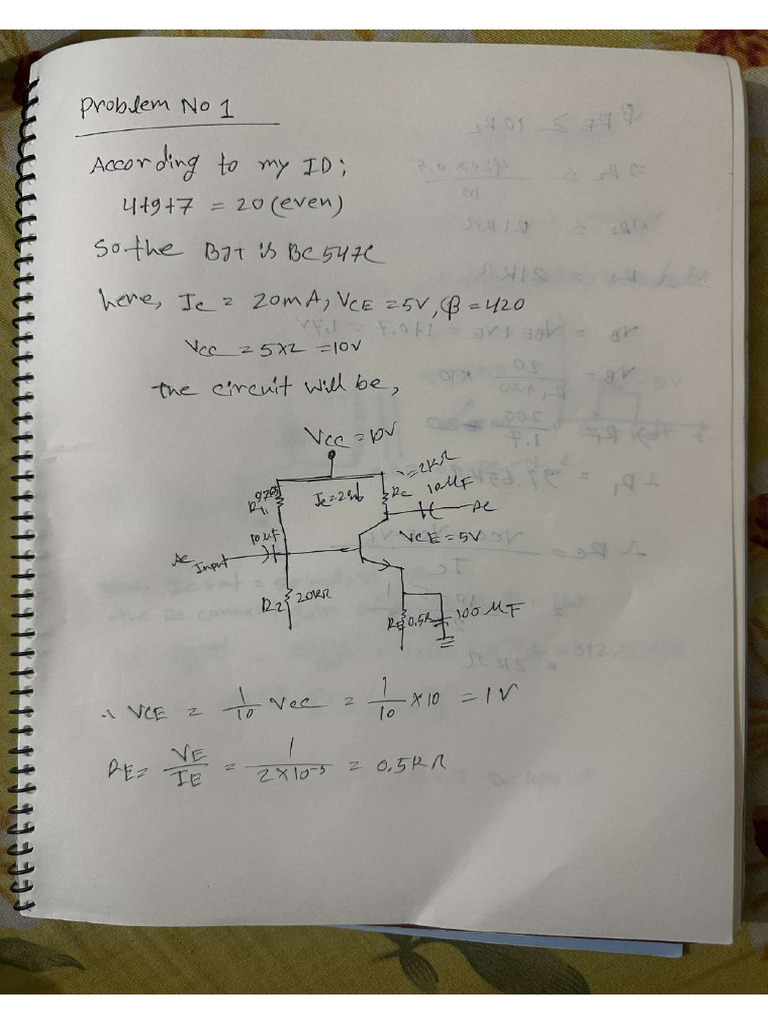 Problem No 1
According to my ID;
4+9+7 = 20 (even)
So the BJT is BC547C
here, Ic = 20mA, VCE = 5V, β = 420
Vcc = 5×2 = 10V
the circuit will be,
Vcc = 10V
R1
Ic = 2mA
= 2KΩ
Rc
10μF
AC
10μF
VCE = 5V
AC Input
R2
20KΩ
RE
0.5K
100μF
∴ VCE = 1/10 Vcc = 1/10 × 10 = 1V
RE = VE/IE = 1/2×10⁻³ = 0.5KΩ